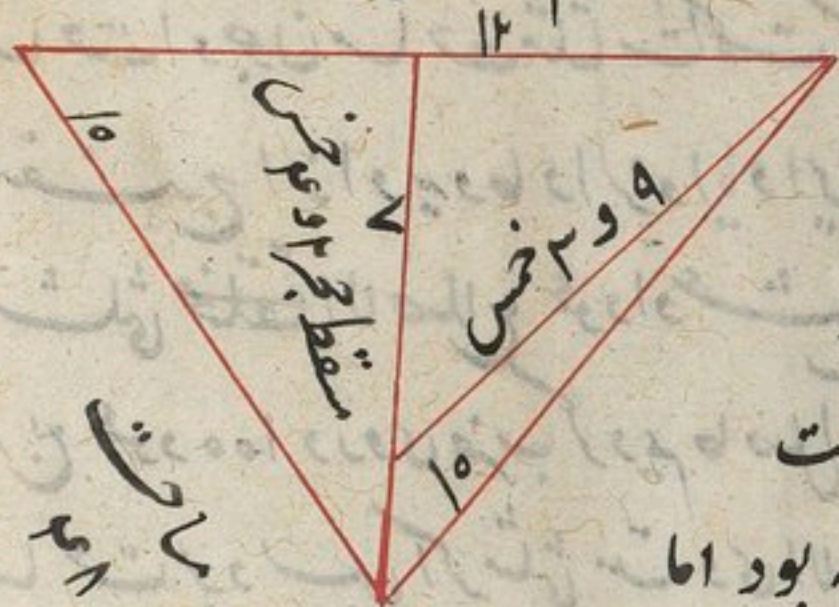 ۱۲
۱۰
مسقط حجر ۲ و ۴ خمس
۹ و ۳ خمس
۱۰
مساحت
۴۸
بود اما